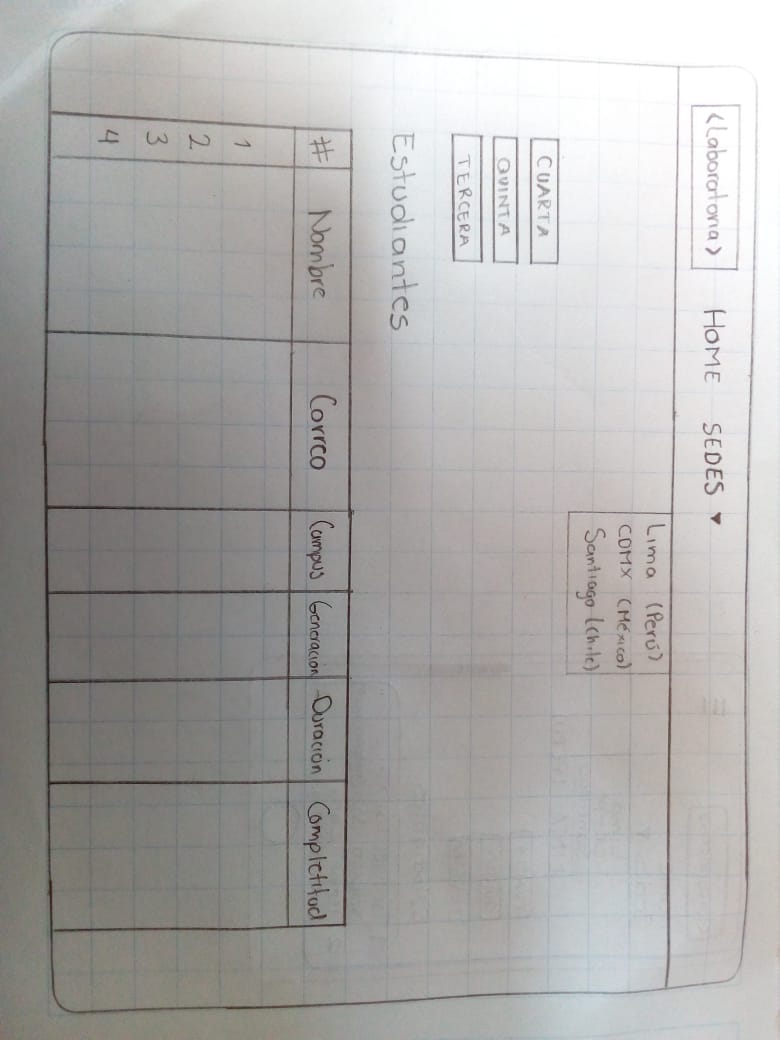 <Laboratoria> HOME SEDES ▼
Lima (Perú)
CDMX (México)
Santiago (Chile)
CUARTA
QUINTA
TERCERA
Estudiantes
# Nombre Correo Campus Generación Duración Completitud
1
2
3
4